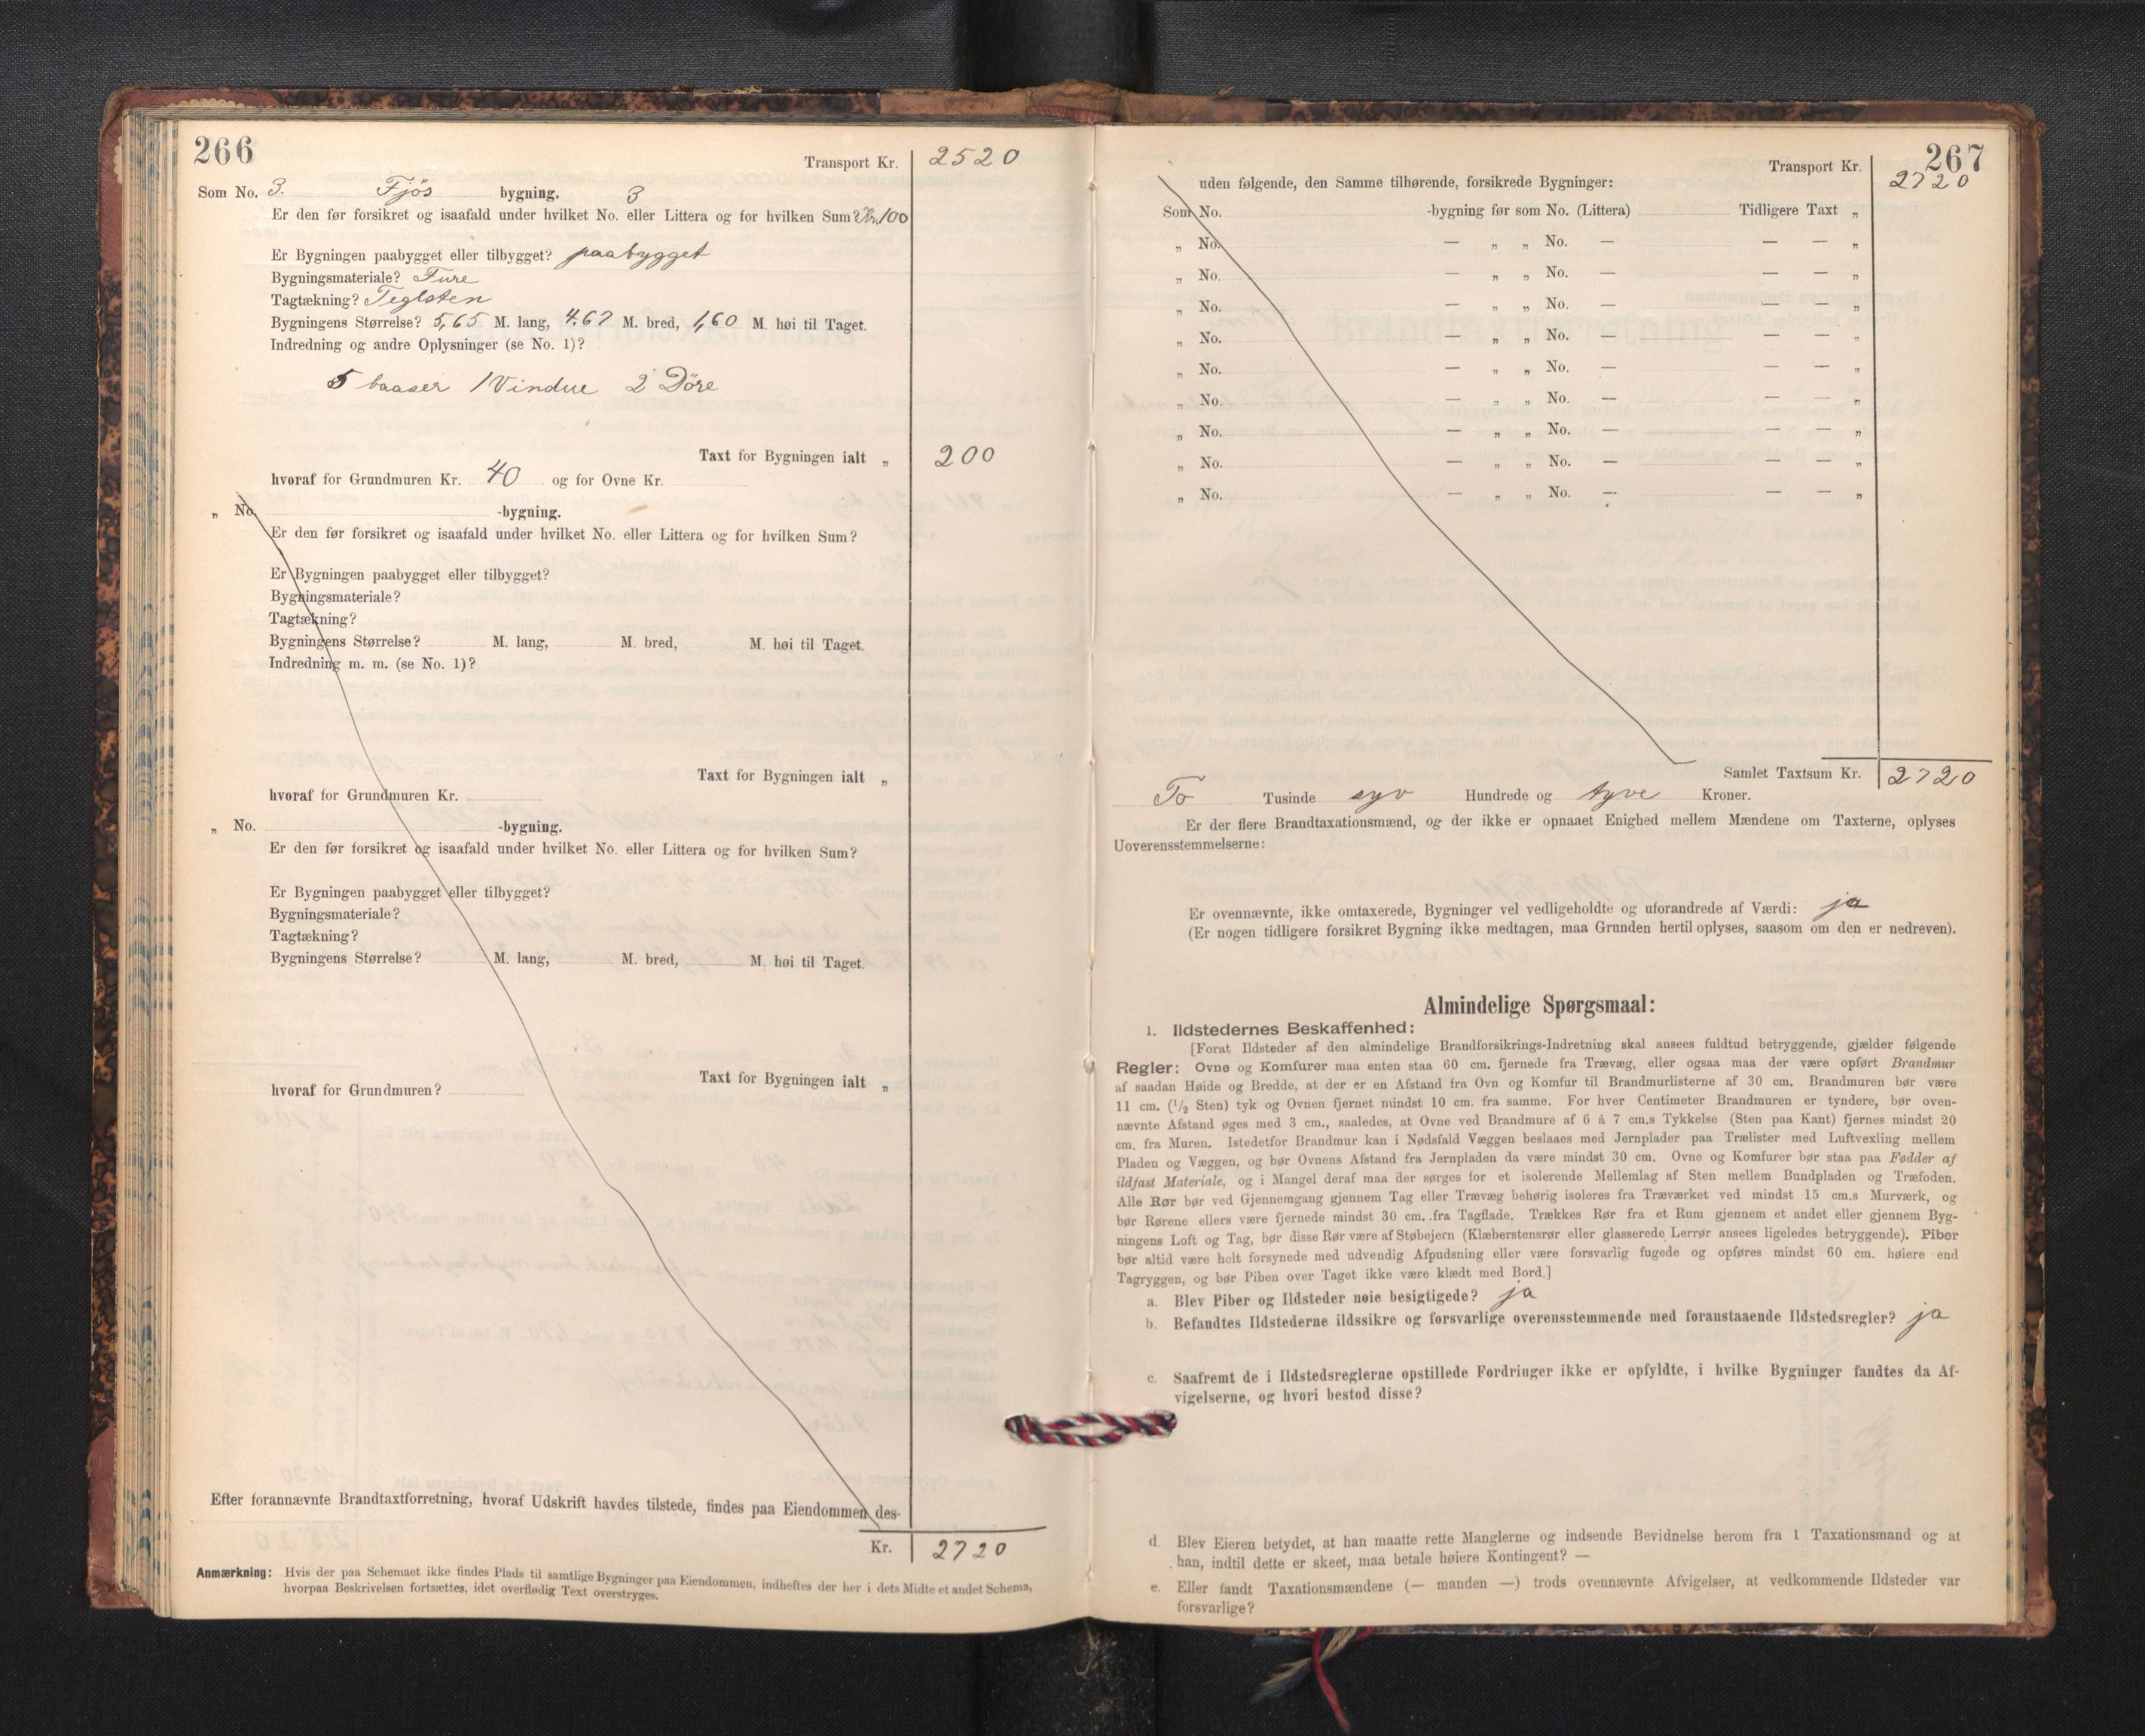 266
Transport Kr. 2520
Som No. 3. Fjös bygning. 3
Er den før forsikret og isaafald under hvilket No. eller Littera og for hvilken Sum? Kr. 100
Er Bygningen paabygget eller tilbygget? paabygget
Bygningsmateriale? Fure
Tagtækning? Teglsten
Bygningens Størrelse? 5,65 M. lang, 4.67 M. bred, 1,60 M. høi til Taget.
Indredning og andre Oplysninger (se No. 1)?
5 baaser 1 Vindue 2 Döre
Taxt for Bygningen ialt „ 200
hvoraf for Grundmuren Kr. 40 og for Ovne Kr.
„ No. -bygning.
Er den før forsikret og isaafald under hvilket No. eller Littera og for hvilken Sum?
Er Bygningen paabygget eller tilbygget?
Bygningsmateriale?
Tagtækning?
Bygningens Størrelse? M. lang, M. bred, M. høi til Taget.
Indredning m. m. (se No. 1)?
Taxt for Bygningen ialt „
hvoraf for Grundmuren Kr.
„ No. -bygning.
Er den før forsikret og isaafald under hvilket No. eller Littera og for hvilken Sum?
Er Bygningen paabygget eller tilbygget?
Bygningsmateriale?
Tagtækning?
Bygningens Størrelse? M. lang, M. bred, M. høi til Taget.
Taxt for Bygningen ialt „
hvoraf for Grundmuren?
Efter forannævnte Brandtaxtforretning, hvoraf Udskrift havdes tilstede, findes paa Eiendommen des-
Kr. 2720
Anmærkning: Hvis der paa Schemaet ikke findes Plads til samtlige Bygninger paa Eiendommen, indheftes der her i dets Midte et andet Schema,
hvorpaa Beskrivelsen fortsættes, idet overflødig Text overstryges.
267
Transport Kr. 2720
uden følgende, den Samme tilhørende, forsikrede Bygninger:
Som No. -bygning før som No. (Littera) Tidligere Taxt „
„ No. — „ „ No. — — — „
„ No. — „ „ No. — — — „
„ No. — „ „ No. — — — „
„ No. — „ „ No. — — — „
„ No. — „ „ No. — — — „
„ No. — „ „ No. — — — „
„ No. — „ „ No. — — — „
„ No. — „ „ No. — — — „
„ No. — „ „ No. — — — „
Samlet Taxtsum Kr. 2720
To Tusinde syv Hundrede og tyve Kroner.
Er der flere Brandtaxationsmænd, og der ikke er opnaaet Enighed mellem Mændene om Taxterne, oplyses
Uoverensstemmelserne:
Er ovennævnte, ikke omtaxerede, Bygninger vel vedligeholdte og uforandrede af Værdi: ja
(Er nogen tidligere forsikret Bygning ikke medtagen, maa Grunden hertil oplyses, saasom om den er nedreven).
Almindelige Spørgsmaal:
1. Ildstedernes Beskaffenhed:
[Forat Ildsteder af den almindelige Brandforsikrings-Indretning skal ansees fuldtud betryggende, gjælder følgende
Regler: Ovne og Komfurer maa enten staa 60 cm. fjernede fra Trævæg, eller ogsaa maa der være opført Brandmur
af saadan Høide og Bredde, at der er en Afstand fra Ovn og Komfur til Brandmurlisterne af 30 cm. Brandmuren bør være
11 cm. (1/2 Sten) tyk og Ovnen fjernet mindst 10 cm. fra samme. For hver Centimeter Brandmuren er tyndere, bør oven-
nævnte Afstand øges med 3 cm., saaledes, at Ovne ved Brandmure af 6 á 7 cm.s Tykkelse (Sten paa Kant) fjernes mindst 20
cm. fra Muren. Istedetfor Brandmur kan i Nødsfald Væggen beslaaes med Jernplader paa Trælister med Luftvexling mellem
Pladen og Væggen, og bør Ovnens Afstand fra Jernpladen da være mindst 30 cm. Ovne og Komfurer bør staa paa Fødder af
ildfast Materiale, og i Mangel deraf maa der sørges for et isolerende Mellemlag af Sten mellem Bundpladen og Træfoden.
Alle Rør bør ved Gjennemgang gjennem Tag eller Trævæg behørig isoleres fra Træværket ved mindst 15 cm.s Murværk, og
bør Rørene ellers være fjernede mindst 30 cm. fra Tagflade. Trækkes Rør fra et Rum gjennem et andet eller gjennem Byg-
ningens Loft og Tag, bør disse Rør være af Støbejern (Klæberstensrør eller glasserede Lerrør ansees ligeledes betryggende). Piber
bør altid være helt forsynede med udvendig Afpudsning eller være forsvarlig fugede og opføres mindst 60 cm. høiere end
Tagryggen, og bør Piben over Taget ikke være klædt med Bord.]
a. Blev Piber og Ildsteder nøie besigtigede? ja
b. Befandtes Ildstederne ildssikre og forsvarlige overensstemmende med foranstaaende Ildstedsregler? ja
c. Saafremt de i Ildstedsreglerne opstillede Fordringer ikke er opfyldte, i hvilke Bygninger fandtes da Af-
vigelserne, og hvori bestod disse?
d. Blev Eieren betydet, at han maatte rette Manglerne og indsende Bevidnelse herom fra 1 Taxationsmand og at
han, indtil dette er skeet, maa betale høiere Kontingent? —
e. Eller fandt Taxationsmændene (— manden —) trods ovennævnte Afvigelser, at vedkommende Ildsteder var
forsvarlige?